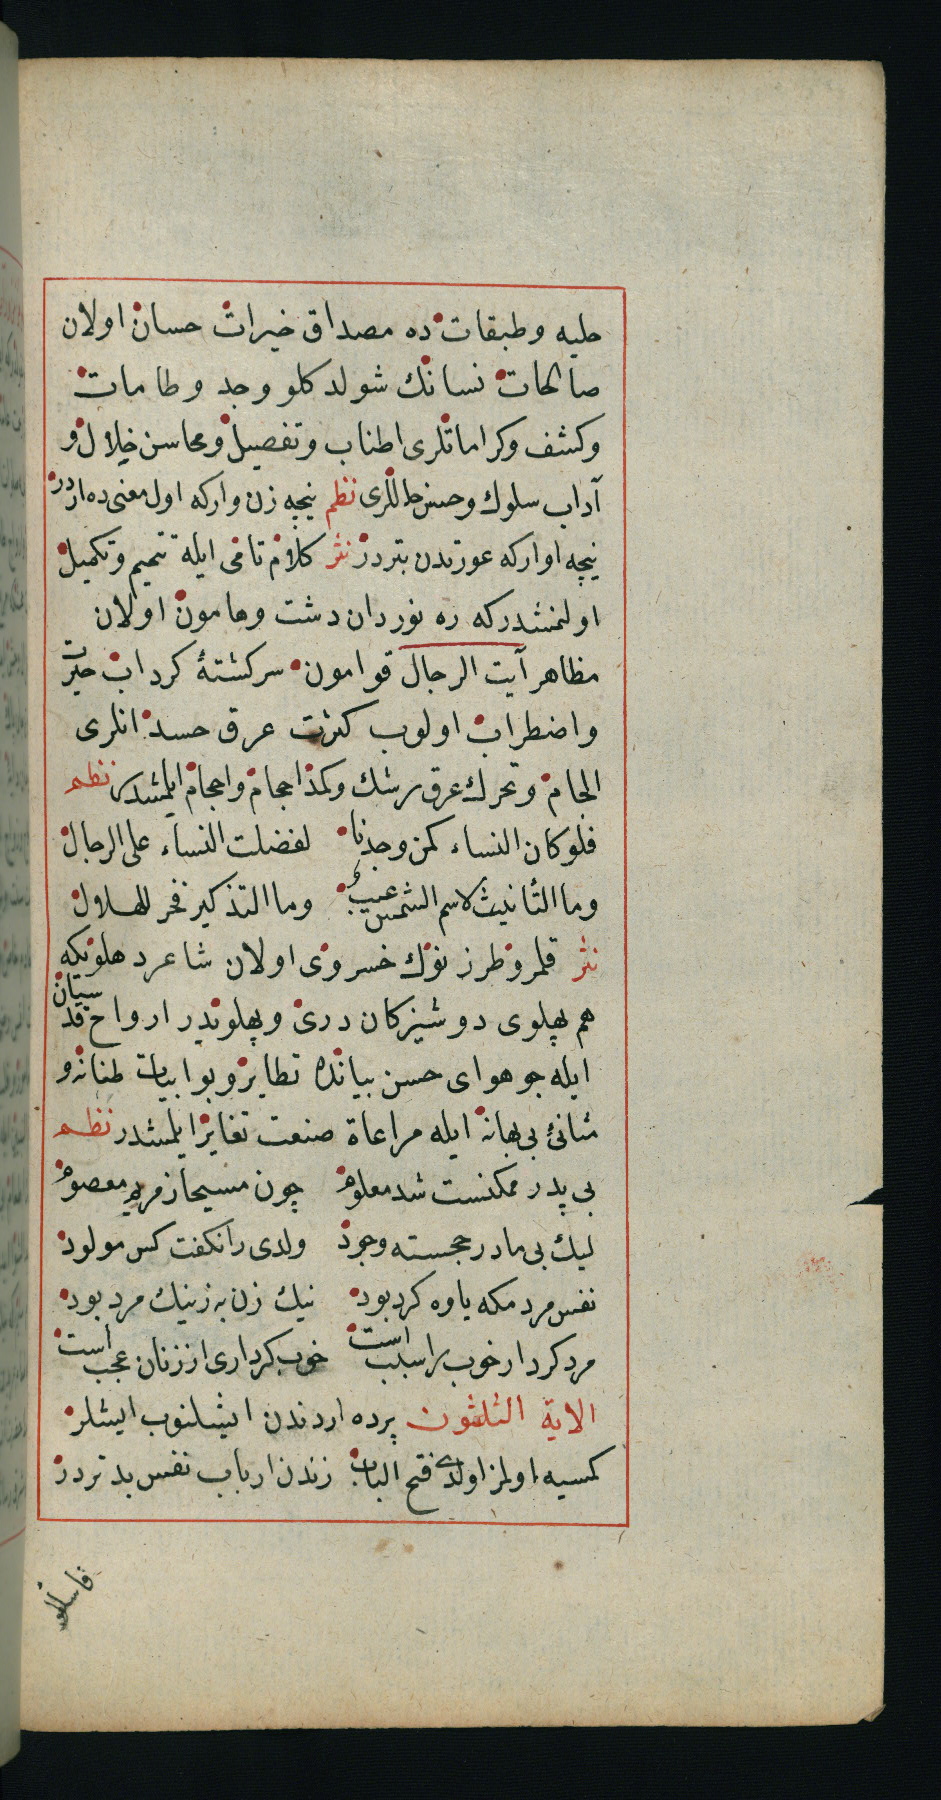 حلیه و طبقات ده مصداق خیرات حسان اولان
صالحات نسانك شولدكلو وجد و طامات
وكشف وكراماتلری اطناب و تفصیل و محاسن خلال و
آداب سلوك وحسن حاللری نظم نیچه زن واركه اول معنی ده اردر
نیچه ار واركه عورتدن بتردر نثر كلام تامی ایله تتمیم و تكمیل
اولنمشدركه ره نوردان دشت وهامون اولان
مظاهر آیت الرجال قوامون سركشتهٔ كرداب حیرت
واضطراب اولوب كثرت عرق حسد انلری
الجام و تحرك عرق رشك وكمد اجام واعجام ایلمشدر نظم
فلو كان النساء كمن وجدنا لفضلت النساء علی الرجال
وما التأنیث لاسم الشمس عیب وما التذكیر فخر للهلال
نثر قلمرو طرز نوك خسروی اولان شاعر دهلوینكه
هم پهلوی دوشیزكان دری وپهلویدر ارواح قدسیان
ایله جو هوای حسن بیانده تطایر و بو ابیات طنانه و
مثانئ بی بهانه ایله مراعاة صنعت تغایر ایلمشدر نظم
بی پدر ممكنست شد معلوم چون مسیحا ز مریم معصوم
لیك بی مادر خجسته وجود ولدی را نكفت كس مولود
نفس مرد مكه یاوه كرد بود نیك زن به ز نیك مرد بود
مرد كردار خوب را سببست خوب كرداری از زنان عجب است
الایة الثلثون پرده اردندن ایشلنوب ایشلر
كمسیه اولمز اولدی فتح الباب زندن ارباب نفس بدتردر